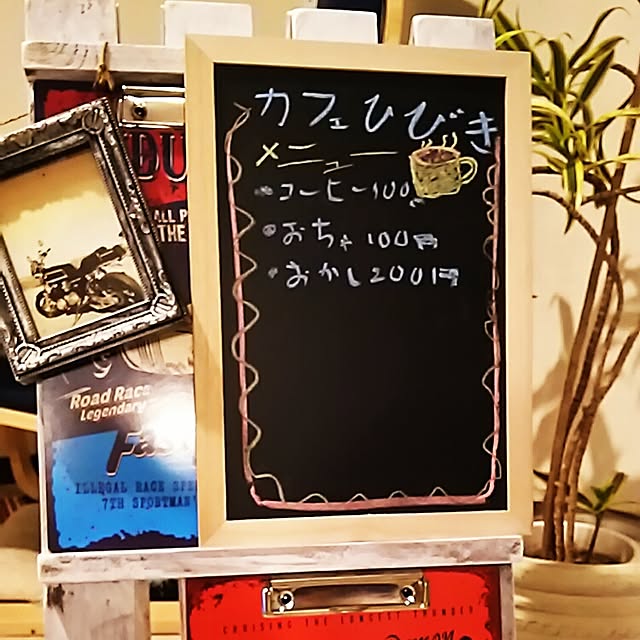 カフェひびき
メニュー
・コーヒー100
・おちゃ100円
・おかし200円
DU
ALL P
THE
Road Race
Legendary
Fas
ILLEGAL RACE SPE
7TH SPORTMAN'
CRUISING THE LONGEST THUNDER